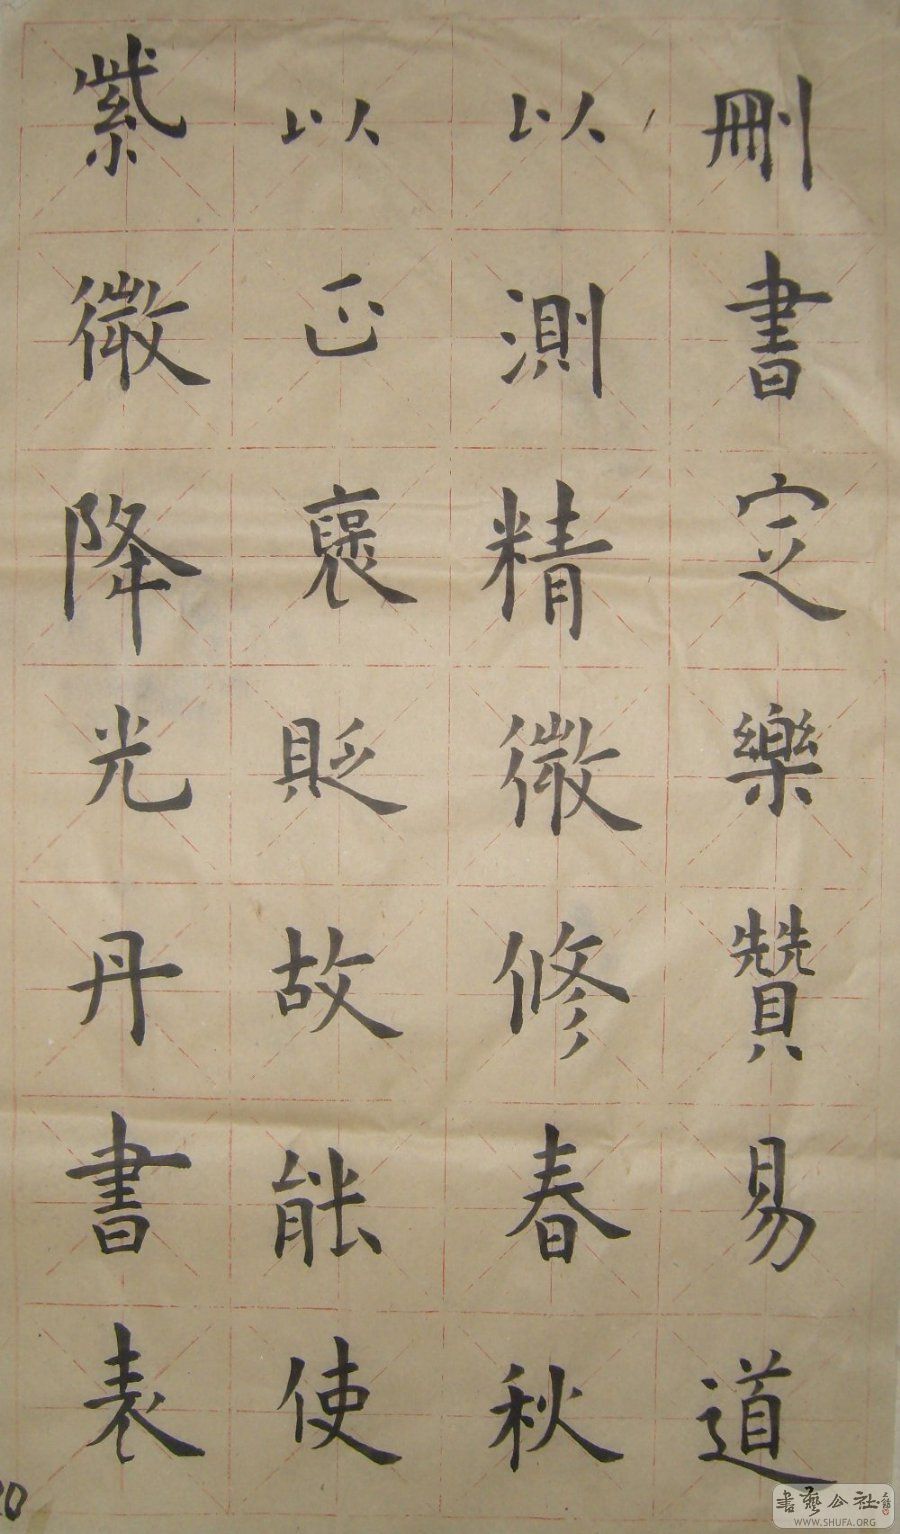 刪書定樂贊易道
以測精微修春秋
以正褒貶故能使
紫微降光丹書表
20
書藝公社
WWW.SHUFA.ORG